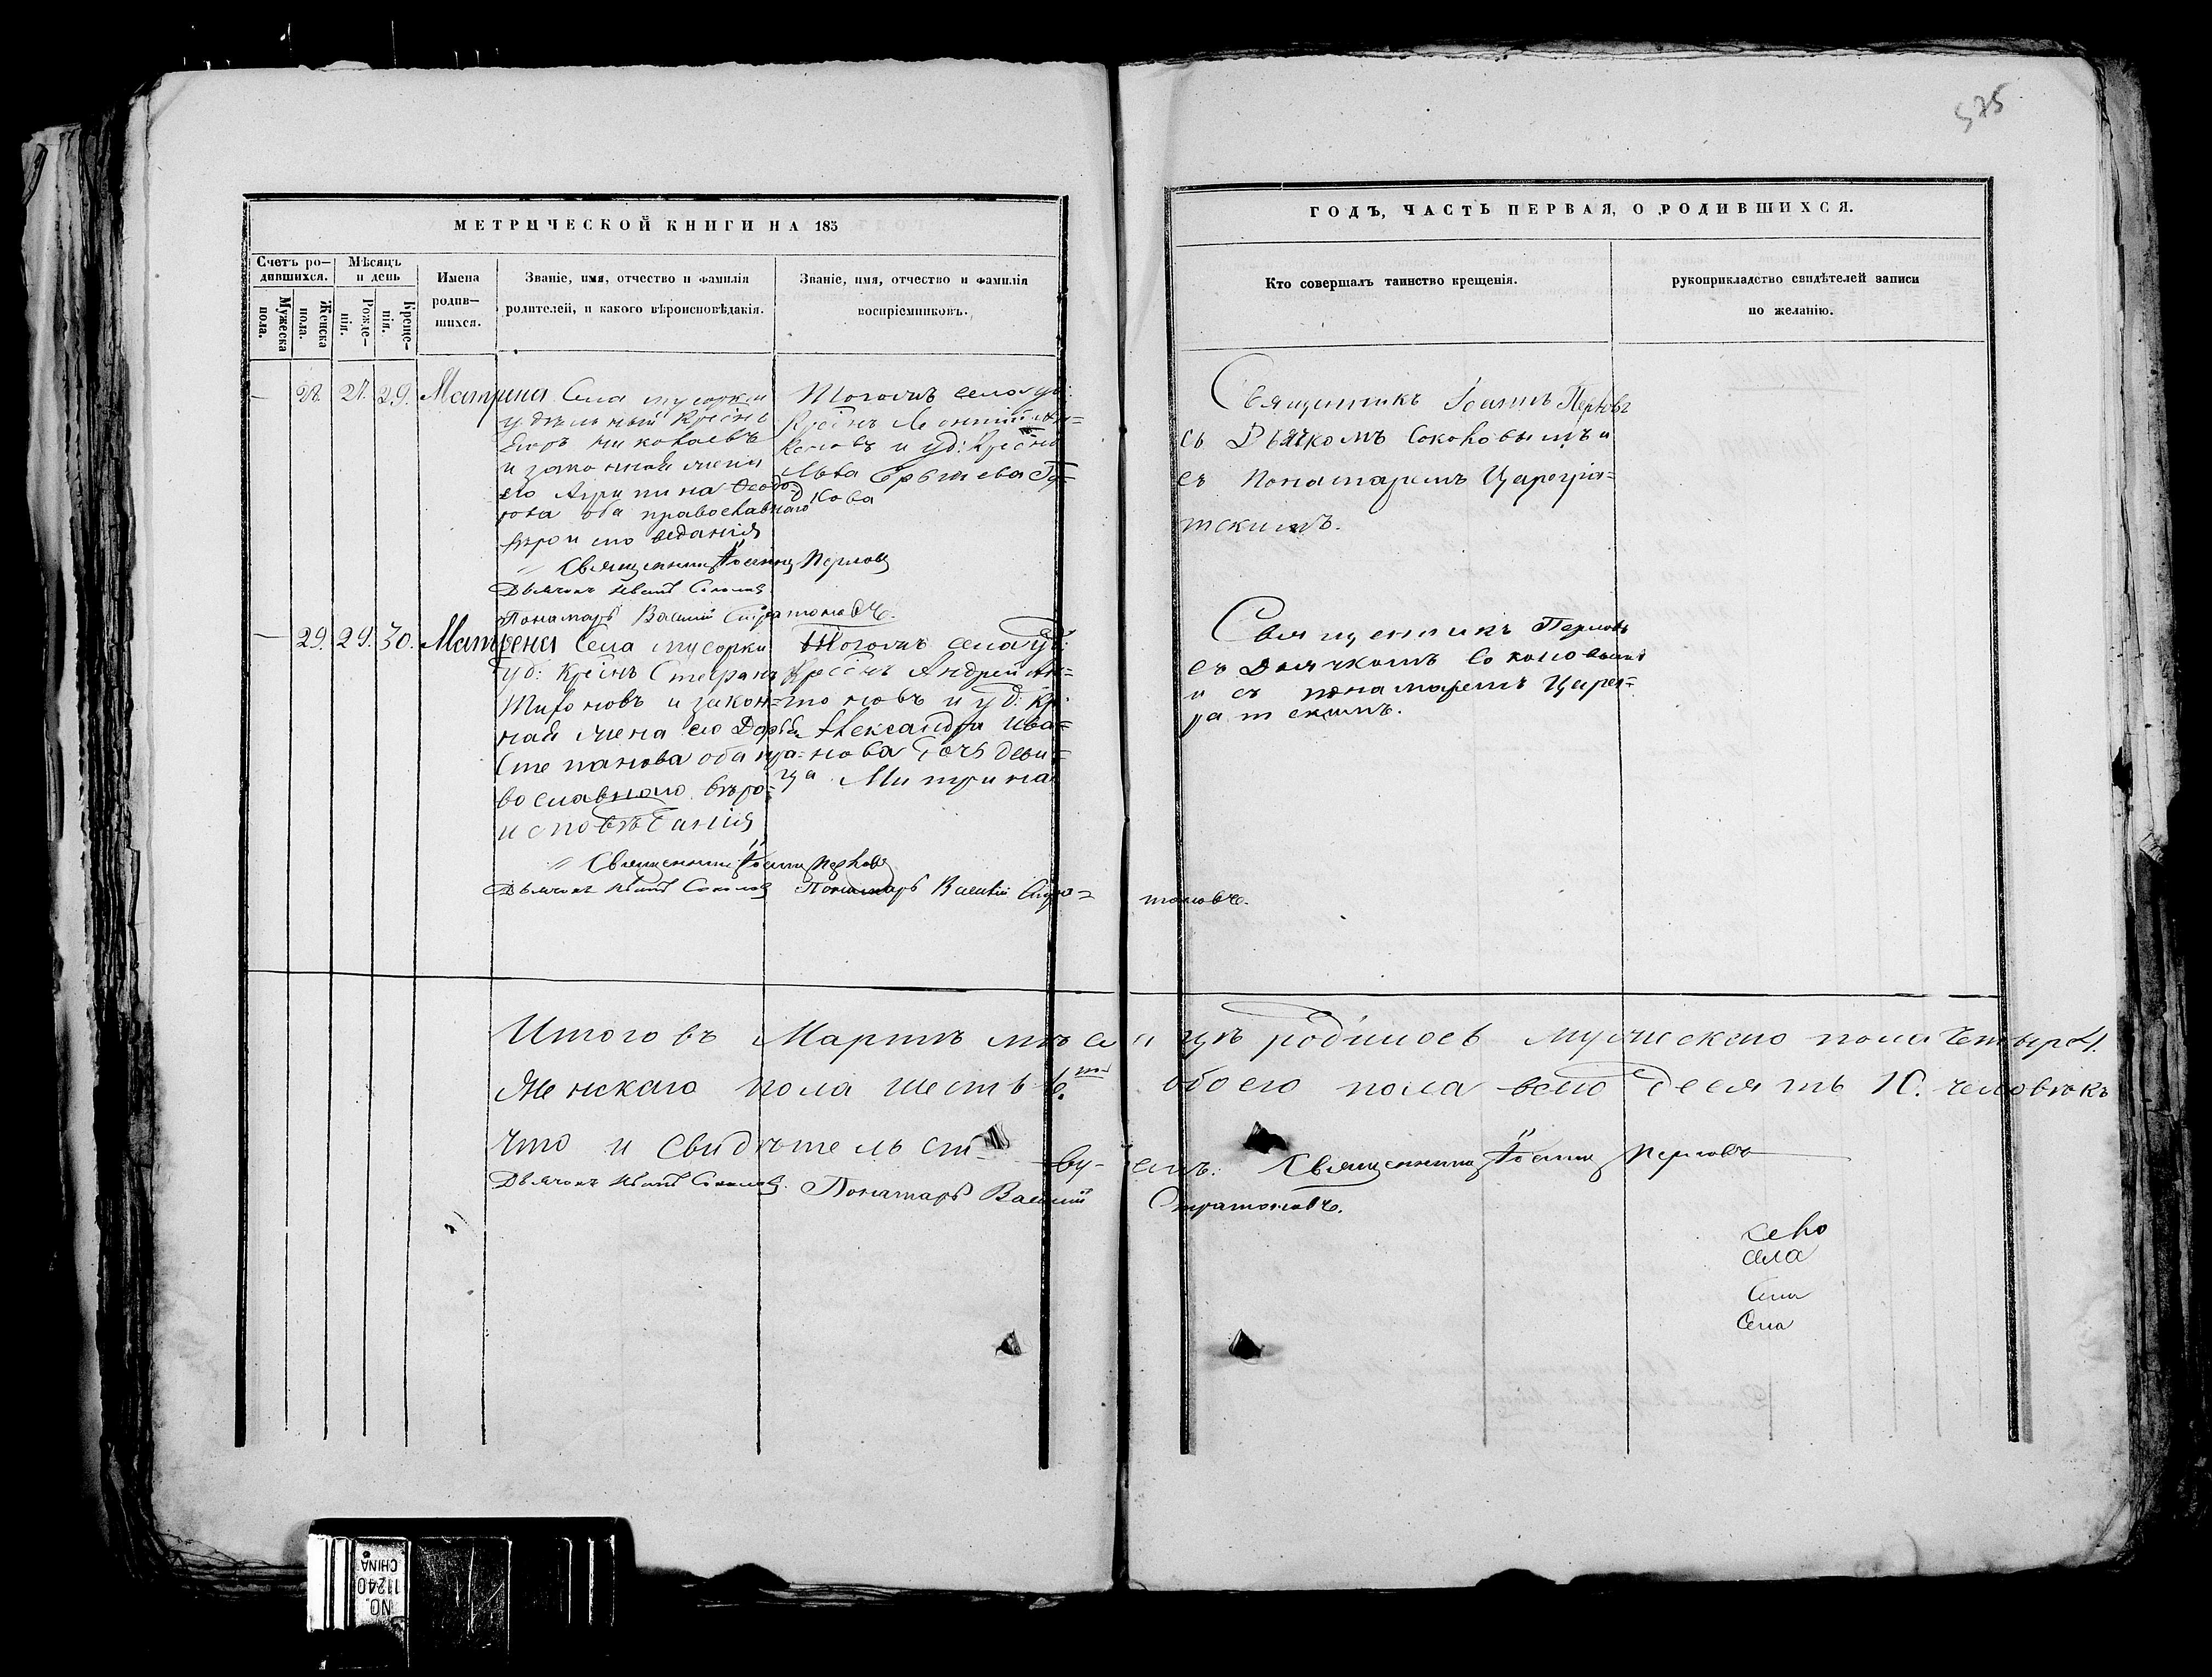 575
МЕТРИЧЕСКОЙ КНИГИ НА 185
ГОДЪ, ЧАСТЬ ПЕРВАЯ, О РОДИВШИХСЯ.
Счетъ ро-
дившихся.
Мужеска
пола.
Женска
пола.
Мѣсяцъ
и день
Рожде-
нія.
Креще-
нія.
Имена
родив-
шихся.
Званіе, имя, отчество и фамилія
родителей, и какого вѣроисповѣданія.
Званіе, имя, отчество и фамилія
воспріемниковъ.
Кто совершалъ таинство крещенія.
рукоприкладство свидѣтелей записи
по желанію.
— 28. 27. 29. Матрина
Села мусорки
удѣльный Крестнъ
Егоръ николаевъ
и законная жена
его Агрипина Ѳеодо
рова оба православнаго
вѣроисповеданія
Тогожъ села уд:
Крестнъ Леонтий
и уд: Крестнъ
кова
Священникъ Іоаннъ Перловъ
съ Дьячкомъ Соколовымъ и
съ Понамаремъ Царегра=
тскимъ.
Священникъ Іоаннъ Перловъ
Дьячокъ Иванъ Соколовъ
Понамарь Василій Стратоновъ.
— 29. 29. 30. Матрена
Села мусорки
уд: Крестнъ Стефанъ
Тихоновъ и закон=
ная жена его Дарья
Степанова оба пра-
вославнаго вѣро=
исповѣданія
Тогожъ села уд:
Крестнъ Андрей Ан=
тоновъ и уд: кр:
Александра Ива=
нова дочь деви=
ца Митрина
Священникъ Перловъ
съ Дьячкомъ Соколовымъ
и съ понамаремъ Царег=
ратскимъ.
Священникъ Іоаннъ Перловъ
Дьячокъ Иванъ Соколовъ Понамарь Василій Стра=тоновъ.
Итого въ Мартѣ мѣсяцѣ родилось мужскаго пола четыре 4.
Женскаго пола шесть 6. обоего пола всего десять 10. человѣкъ
что и свидѣтельст-вуемъ: Священникъ Іоаннъ Перловъ
Дьячокъ Иванъ Соколовъ. Понамарь Василій Стратоновъ.
село
села
Села
Села
NO.
11240
CHINA